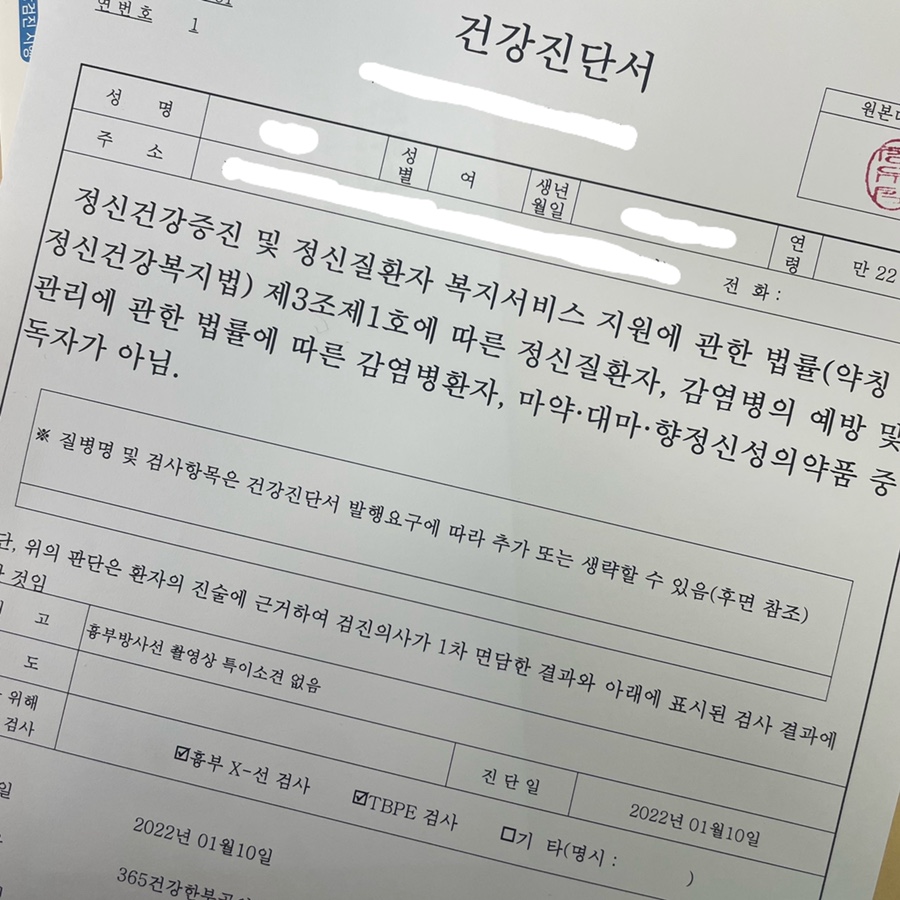 연번호 1
건강진단서
성 명
성별 여 생년월일 연령 만 22
주 소
전 화 :
정신건강증진 및 정신질환자 복지서비스 지원에 관한 법률(약칭
정신건강복지법) 제3조제1호에 따른 정신질환자, 감염병의 예방 및
관리에 관한 법률에 따른 감염병환자, 마약·대마·향정신성의약품 중
독자가 아님.
※ 질병명 및 검사항목은 건강진단서 발행요구에 따라 추가 또는 생략할 수 있음(후면 참조)
단, 위의 판단은 환자의 진술에 근거하여 검진의사가 1차 면담한 결과와 아래에 표시된 검사 결과에
것임
고 흉부방사선 촬영상 특이소견 없음
도
위해
검사
☑흉부 X-선 검사 ☑TBPE 검사 ☐기 타(명시 : )
진 단 일 2022년 01월10일
2022년 01월10일